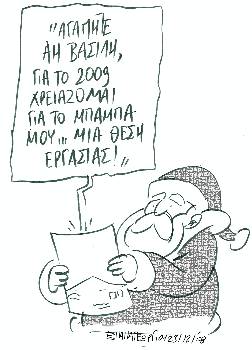 "ΑΓΑΠΗΤΕ
ΑΗ ΒΑΣΙΛΗ,
ΓΙΑ ΤΟ 2009
ΧΡΕΙΑΖΟΜΑΙ
ΓΙΑ ΤΟ ΜΠΑΜΠΑ
ΜΟΥ... ΜΙΑ ΘΕΣΗ
ΕΡΓΑΣΙΑΣ!"